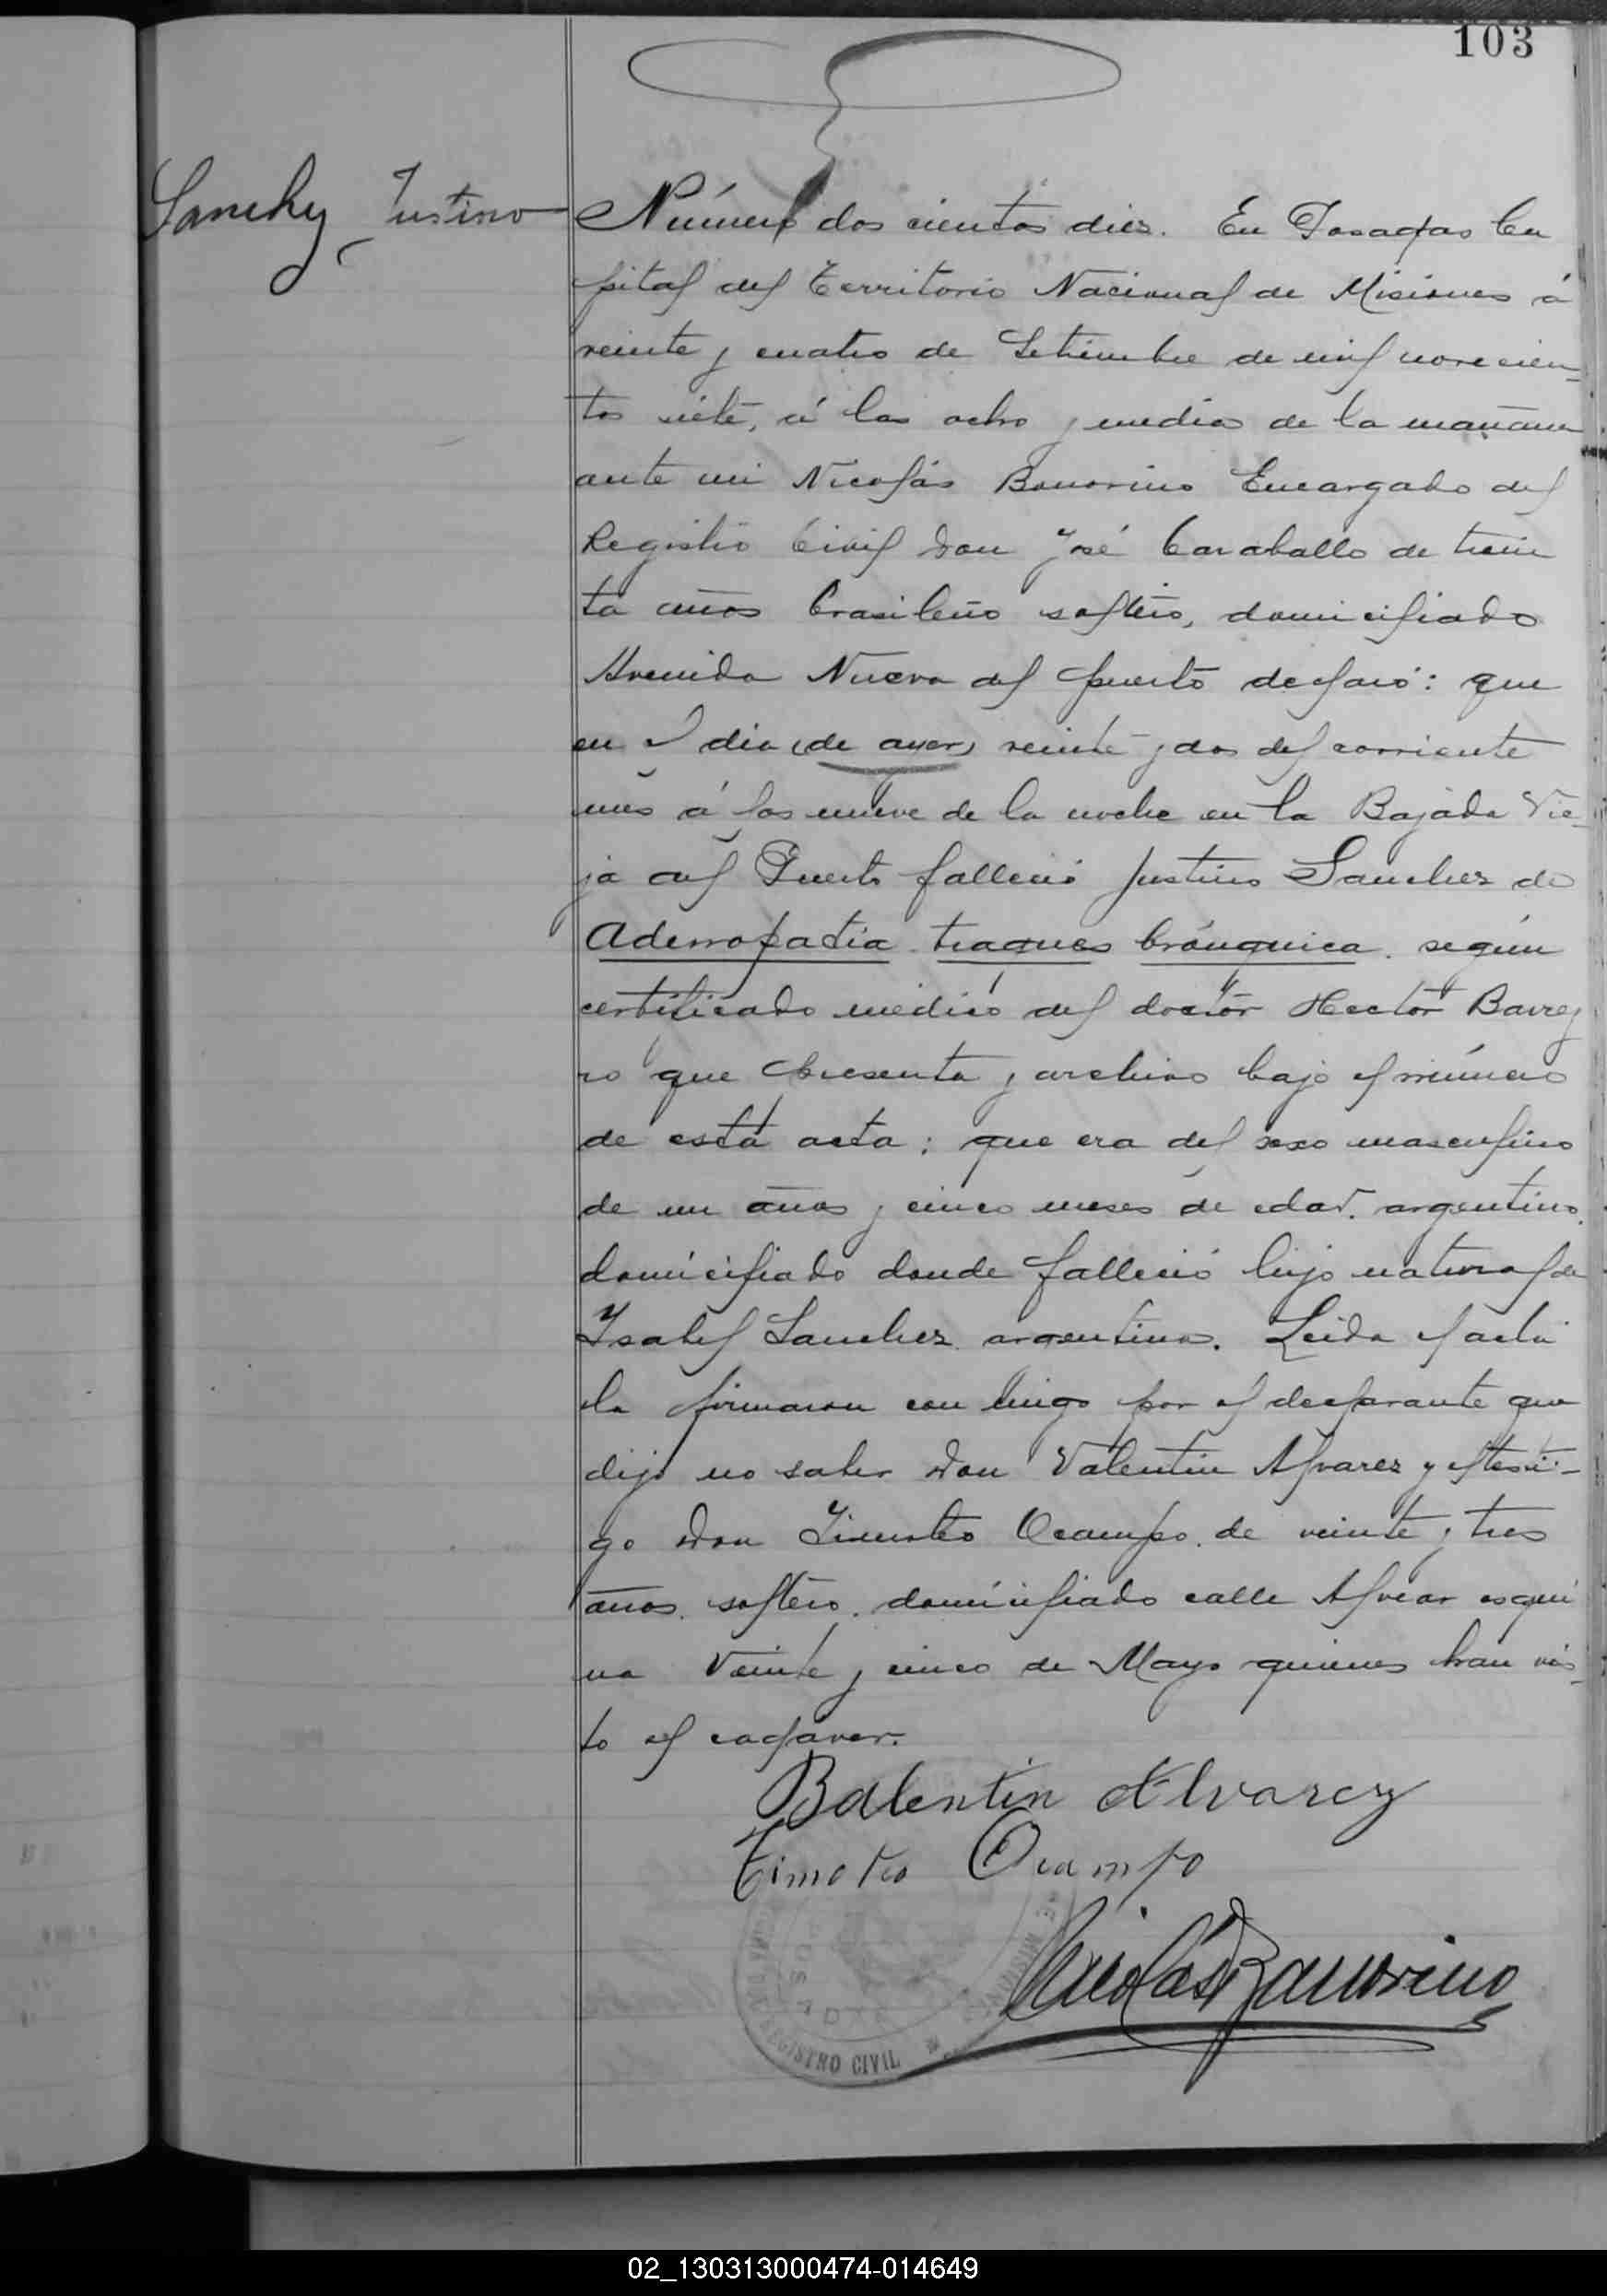 103
Sanchez Justino
Número dos cientos diez. En Posadas Ca
pital del Territorio Nacional de Misiones á
veinte y cuatro de Setiembre de mil novecien-
tos siete, á las ocho y media de la mañana
ante mi Nicolás Bonorino Encargado del
Registro Civil Don José Caraballo de trein
ta años brasileño soltero, domiciliado
Avenida Nueva del puerto declaró: que
en el dia (de ayer) veinte y dos del corriente
mes á las nueve de la noche en la Bajada Vie-
ja del Puerto falleció Justino Sanchez de
Adenopatía traqueo brónquica. según
certificado médico del doctor Hector Barrey
ro que presenta y archivo bajo el número
de esta acta: que era del sexo masculino
de un años y cinco meses de edad. argentino.
domiciliado donde falleció hijo natural de
Ysabel Sanchez argentina. Leida el acta
la firmaron con migo por el declarante que
dijo no saber Don Valentin Alvarez y el testi-
go Don Timoteo Ocampo. de veinte y tres
años. soltero. domiciliado calle Alvear esqui
na Veinte y cinco de Mayo quienes han vis-
to el cadaver.
Balentin Alvarez
Timoteo Ocampo
Nicolás Bonorino
REGISTRO CIVIL
POSADAS
02_130313000474-014649